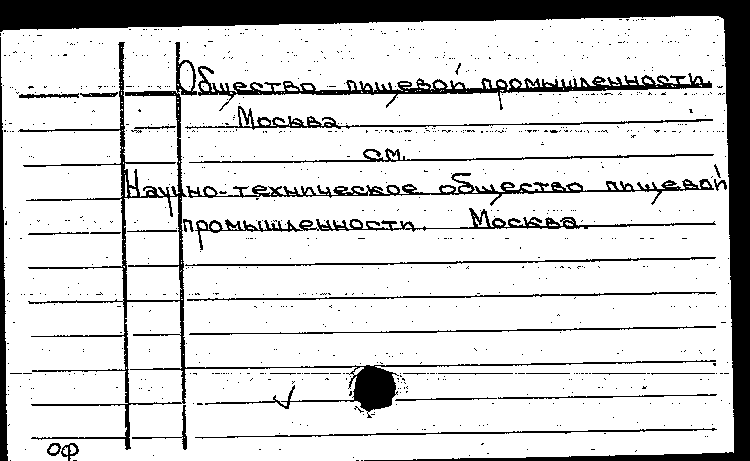 Общество пищевой промышленности.
Москва.
см.
Научно-техническое общество пищевой
промышленности. Москва.
ОФ